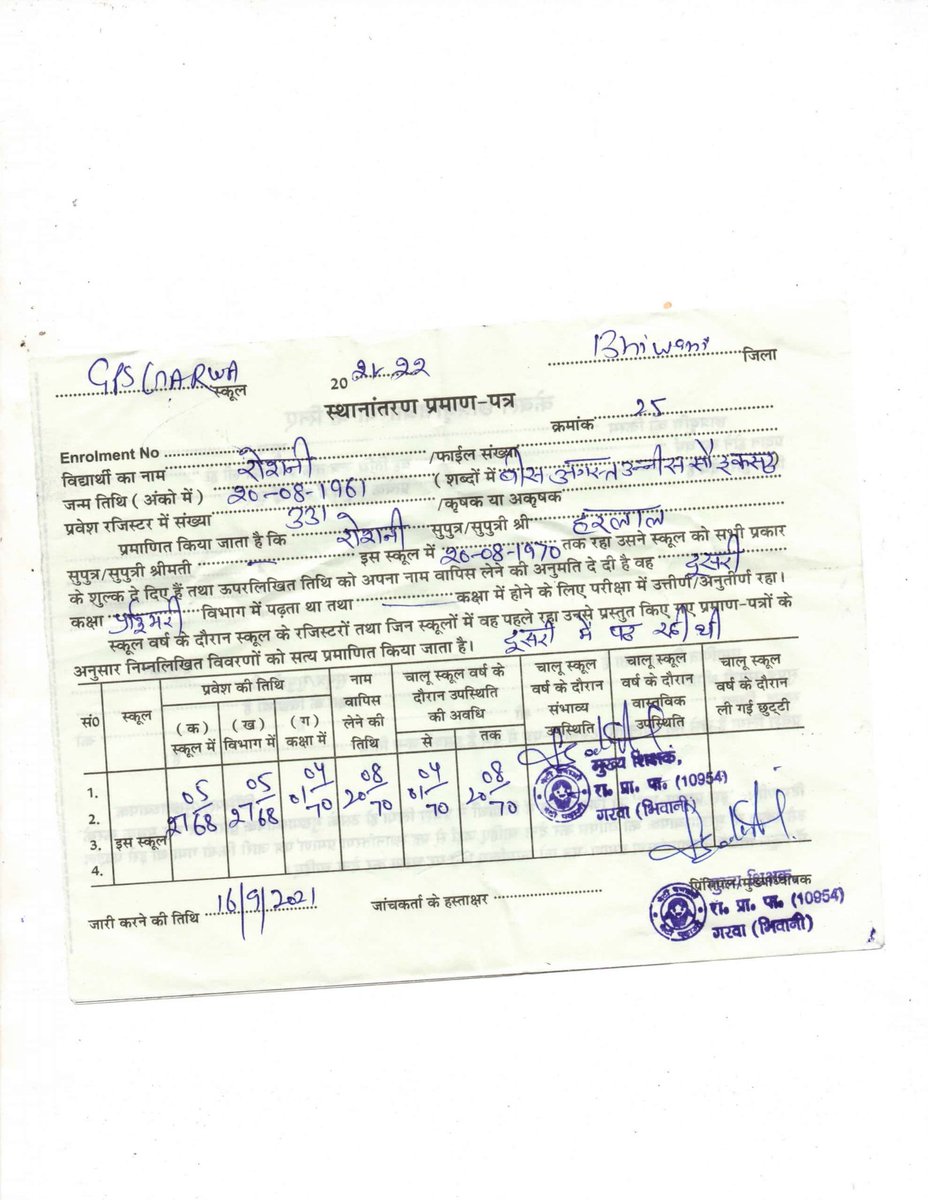 GPS GARWA स्कूल 20 21-22 Bhiwani जिला
स्थानांतरण प्रमाण-पत्र
क्रमांक 25
Enrolment No /फाईल संख्या
विद्यार्थी का नाम रोशनी ( शब्दों में बीस अगस्त उन्नीस सौ इकसठ
जन्म तिथि ( अंको में ) 20-08-1961 /कृषक या अकृषक
प्रवेश रजिस्टर में संख्या 331
प्रमाणित किया जाता है कि रोशनी सुपुत्र/सुपुत्री श्री हरलाल
सुपुत्र/सुपुत्री श्रीमती — इस स्कूल में 20-08-1970 तक रहा उसने स्कूल को सभी प्रकार
के शुल्क दे दिए हैं तथा ऊपरलिखित तिथि को अपना नाम वापिस लेने की अनुमति दे दी है वह दुसरी
कक्षा प्राईमरी विभाग में पढ़ता था तथा — कक्षा में होने के लिए परीक्षा में उत्तीर्ण/अनुतीर्ण रहा।
दुसरी में पढ़ रही थी
स्कूल वर्ष के दौरान स्कूल के रजिस्टरों तथा जिन स्कूलों में वह पहले रहा उनसे प्रस्तुत किए गए प्रमाण-पत्रों के
अनुसार निम्नलिखित विवरणों को सत्य प्रमाणित किया जाता है।
सं0 स्कूल प्रवेश की तिथि नाम वापिस लेने की तिथि चालू स्कूल वर्ष के दौरान उपस्थिति की अवधि चालू स्कूल वर्ष के दौरान संभाव्य उपस्थिति चालू स्कूल वर्ष के दौरान वास्तविक उपस्थिति चालू स्कूल वर्ष के दौरान ली गई छुट्टी
( क ) स्कूल में ( ख ) विभाग में ( ग ) कक्षा में से तक
1.
2.
3. इस स्कूल
4.
05 05 04 08 04 08
27 68 27 68 01 70 20 70 01 70 20 70
मुख्य शिक्षक,
रा. प्रा. पा. (10954)
गरवा (भिवानी)
जारी करने की तिथि 16/9/2021 जांचकर्ता के हस्ताक्षर
प्रिंसिपल/मुख्याध्यापक
मुख्य शिक्षक
रा. प्रा. पा. (10954)
गरवा (भिवानी)